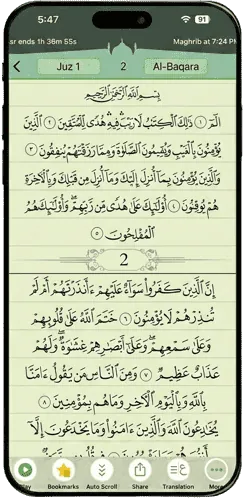 5:47
91
sr ends 1h 36m 55s
Maghrib at 7:24 P
Juz 1
2
Al-Baqara
بِسْمِ اللَّهِ الرَّحْمَٰنِ الرَّحِيمِ
الٓمٓ ١ ذَٰلِكَ الْكِتَابُ لَا رَيْبَ فِيهِ هُدًى لِّلْمُتَّقِينَ ٢ الَّذِينَ
يُؤْمِنُونَ بِالْغَيْبِ وَيُقِيمُونَ الصَّلَوٰةَ وَمِمَّا رَزَقْنَٰهُمْ يُنفِقُونَ ٣
وَالَّذِينَ يُؤْمِنُونَ بِمَا أُنزِلَ إِلَيْكَ وَمَا أُنزِلَ مِن قَبْلِكَ وَبِالْآخِرَةِ
هُمْ يُوقِنُونَ ٤ أُولَٰئِكَ عَلَىٰ هُدًى مِّن رَّبِّهِمْ وَأُولَٰئِكَ هُمُ
الْمُفْلِحُونَ ٥
2
إِنَّ الَّذِينَ كَفَرُوا سَوَاءٌ عَلَيْهِمْ ءَأَنذَرْتَهُمْ أَمْ لَمْ
تُنذِرْهُمْ لَا يُؤْمِنُونَ ٦ خَتَمَ اللَّهُ عَلَىٰ قُلُوبِهِمْ
وَعَلَىٰ سَمْعِهِمْ وَعَلَىٰ أَبْصَٰرِهِمْ غِشَٰوَةٌ وَلَهُمْ
عَذَابٌ عَظِيمٌ ٧ وَمِنَ النَّاسِ مَن يَقُولُ ءَامَنَّا
بِاللَّهِ وَبِالْيَوْمِ الْآخِرِ وَمَا هُم بِمُؤْمِنِينَ ٨
يُخَٰدِعُونَ اللَّهَ وَالَّذِينَ ءَامَنُوا وَمَا يَخْدَعُونَ إِلَّا
Play
Bookmarks
Auto Scroll
Share
Translation
More